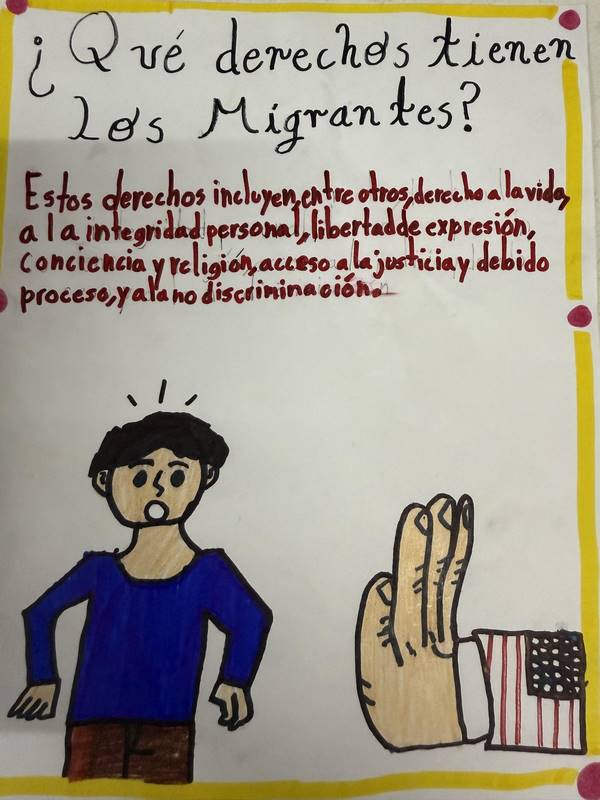 ¿Qué derechos tienen
Los Migrantes?
Estos derechos incluyen, entre otros, derecho a la vida,
a la integridad personal, libertad de expresión,
conciencia y religión, acceso a la justicia y debido
proceso, y a la no discriminación.